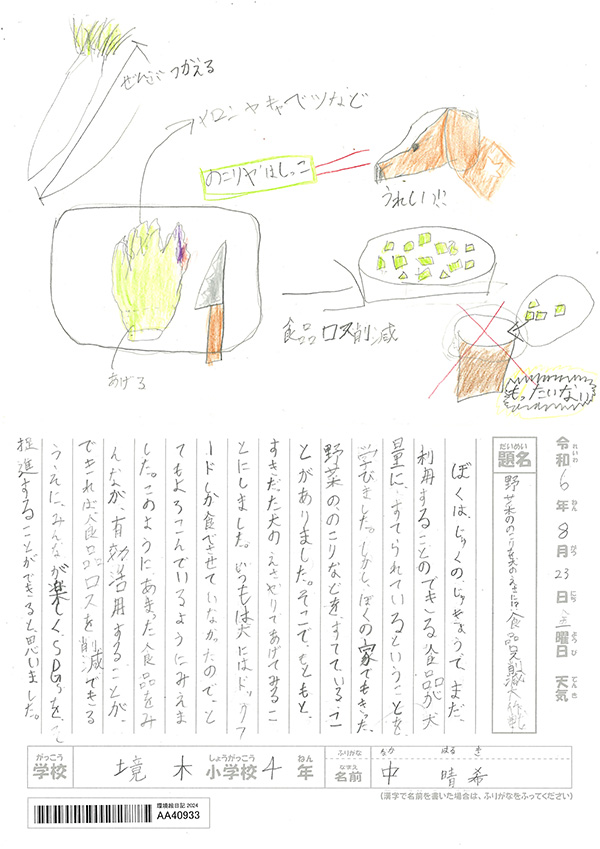 ぜんぶつかえる
メロンヤキャベツなど
のこりやはしっこ
うれしい!!
あげる
食品ロス削減
もったいない
令和6年8月23日金曜日 天気
れいわ ねん がつ にち ようび てんき
だいめい
題名
ぼくは、じゅくのじゅぎょうで、まだ、
利用することのできる食品が大
量に、すてられているということを
学びました。しかし、ぼくの家でもきった、
野菜の、のこりなどをすてている、こ
とがありました。そこで、もともと、
すきだた犬のえさやりてあげてみるこ
とにしました。いつもは犬にはドッグフ
ードしか食べさせていなかったので、と
てもよろこんでいるようにみえま
した。このようにあまった食品をみ
んなが、有効活用することが、
できれば食品ロスを削減できる
うえに、みんなが楽しくSDGsを、
促進することができると思いました。
がっこう しょうがっこう ねん
学校 境木小学校4年
ふりがな なか はる き
なまえ
名前 中 晴希
(漢字で名前を書いた場合は、ふりがなをふってください)
環境絵日記 2024
AA40933